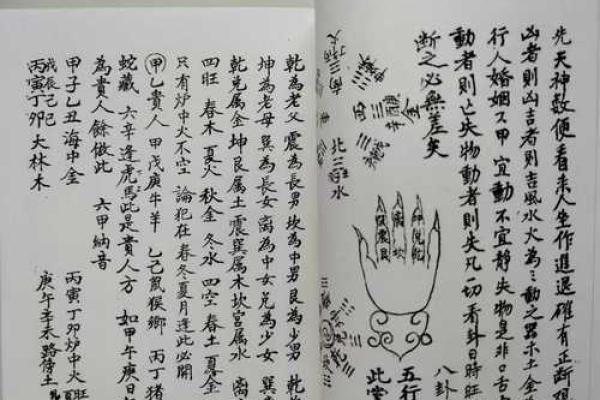 先天神數便看來人坐作進退確有正断
凶者則凶吉者則吉風水火為三動之器木土金
行人婚姻又甲宜動不宜静失物是非口舌
動者則亡失物動者則失凡一切看卦日時旺
断之必無差矣
八卦
五行
此掌
南
西
金
北
水
坤兌乾
離坎
巽震艮
乾為老父 震為長男 坎為中男 艮為少男 乾
坤為老母 巽為長女 离為中女 兌為少女 巽
乾兌属金 坤艮属土 震巽属木 坎宫属水 离
四旺 春木 夏火 秋金 冬水 四空 春土 夏金
只有炉中火不空 論犯在春冬夏月逢此必開
甲乙貴人 甲戊庚牛羊 乙己鼠猴鄉 丙丁猪
蛇藏 六辛逢虎馬此是貴人方 如甲午庚日
為貴人 餘做此 六甲納音
甲子乙丑海中金 丙寅丁卯炉中火
戊辰己巳
丙寅丁卯 大林木 庚午辛未路傍土